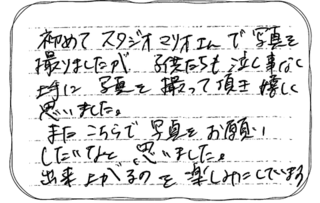 初めてスタジオマリオさんで写真を
撮りましたが 子供たちも泣く事なく
上手に写真を撮って頂き嬉しく
思いました。
またこちらで写真をお願い
したいなと、思いました。
出来上がるのを楽しみにしています